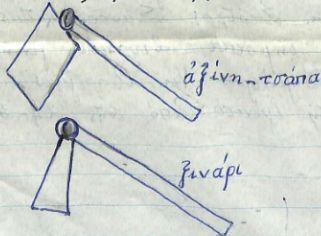 ἀξίνη - τσάπα
ξινάρι